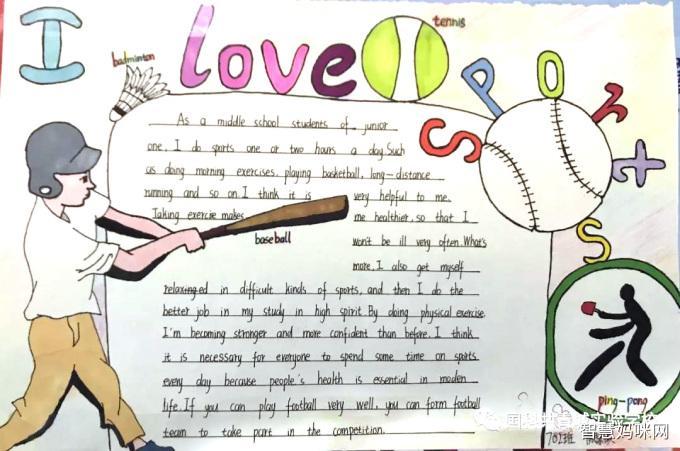 I love sports
tennis
badminton
As a middle school students of junior
one, I do sports one or two hours a day. Such
as doing morning exercises, playing basketball, long-distance
running and so on. I think it is very helpful to me.
Taking exercise makes me healthier, so that I
baseball
won't be ill very often. What's
more, I also get myself
relaxinged in difficult kinds of sports, and then I do the
better job in my study in high spirit. By doing physical exercise
I'm becoming stronger and more confident than before. I think
it is necessary for everyone to spend some time on sports
every day because people's health is essential in moden
life. If you can play football very well, you can form football
team to take part in the competition.
ping-pong
701班
智慧妈咪网